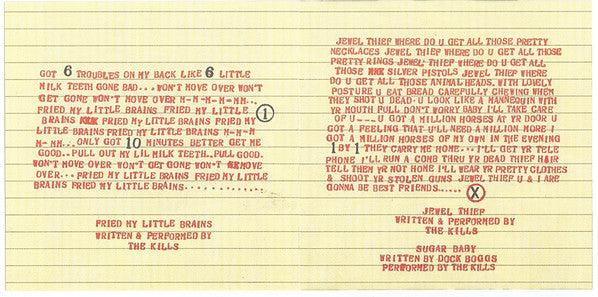 GOT 6 TROUBLES ON MY BACK LIKE 6 LITTLE
MILK TEETH GONE BAD...WON'T MOVE OVER WON'T
GET GONE WON'T MOVE OVER M-M-M-M-MM...
FRIED MY LITTLE BRAINS FRIED MY LITTLE 1
BRAINS FRIED MY LITTLE BRAINS FRIED MY
LITTLE BRAINS FRIED MY LITTLE BRAINS M-M-M
M-MM...ONLY GOT 10 MINUTES BETTER GET ME
GOOD..PULL OUT MY LIL MILK TEETH..PULL GOOD.
WON'T MOVE OVER WON'T GET GONE WON'T MOVE
OVER...FRIED MY LITTLE BRAINS FRIED MY LITTLE
BRAINS FRIED MY LITTLE BRAINS............
FRIED MY LITTLE BRAINS
WRITTEN & PERFORMED BY
THE KILLS
JEWEL THIEF WHERE DO U GET ALL THOSE PRETTY
NECKLACES JEWEL THIEF WHERE DO U GET ALL THOSE
PRETTY RINGS JEWEL THIEF WHERE DO U GET ALL
THOSE SILVER PISTOLS JEWEL THIEF WHERE
DO U GET ALL THOSE ANIMAL HEADS. WITH LOVELY
POSTURE U EAT BREAD CAREFULLY CHEWING WHEN
THEY SHOT U DEAD-U LOOK LIKE A MANNEQUIN WITH
YR MOUTH FULL DON'T WORRY BABY I'LL TAKE CARE
OF U---U GOT A MILLION HORSES AT YR DOOR U
GOT A FEELING THAT U'LL NEED A MILLION MORE I
GOT A MILLION HORSES OF MY OWN IN THE EVENING
1 BY 1 THEY CARRY ME HOME...I'LL GET YR TELE
PHONE I'LL RUN A COMB THRU YR DEAD THIEF HAIR
TELL THEM YR NOT HOME I'LL WEAR YR PRETTY CLOTHES
& SHOOT YR STOLEN GUNS JEWEL THIEF U & I ARE
GONNA BE BEST FRIENDS...... X
JEWEL THIEF
WRITTEN & PERFORMED BY
THE KILLS
SUGAR BABY
WRITTEN BY DOCK BOGGS
PERFORMED BY THE KILLS